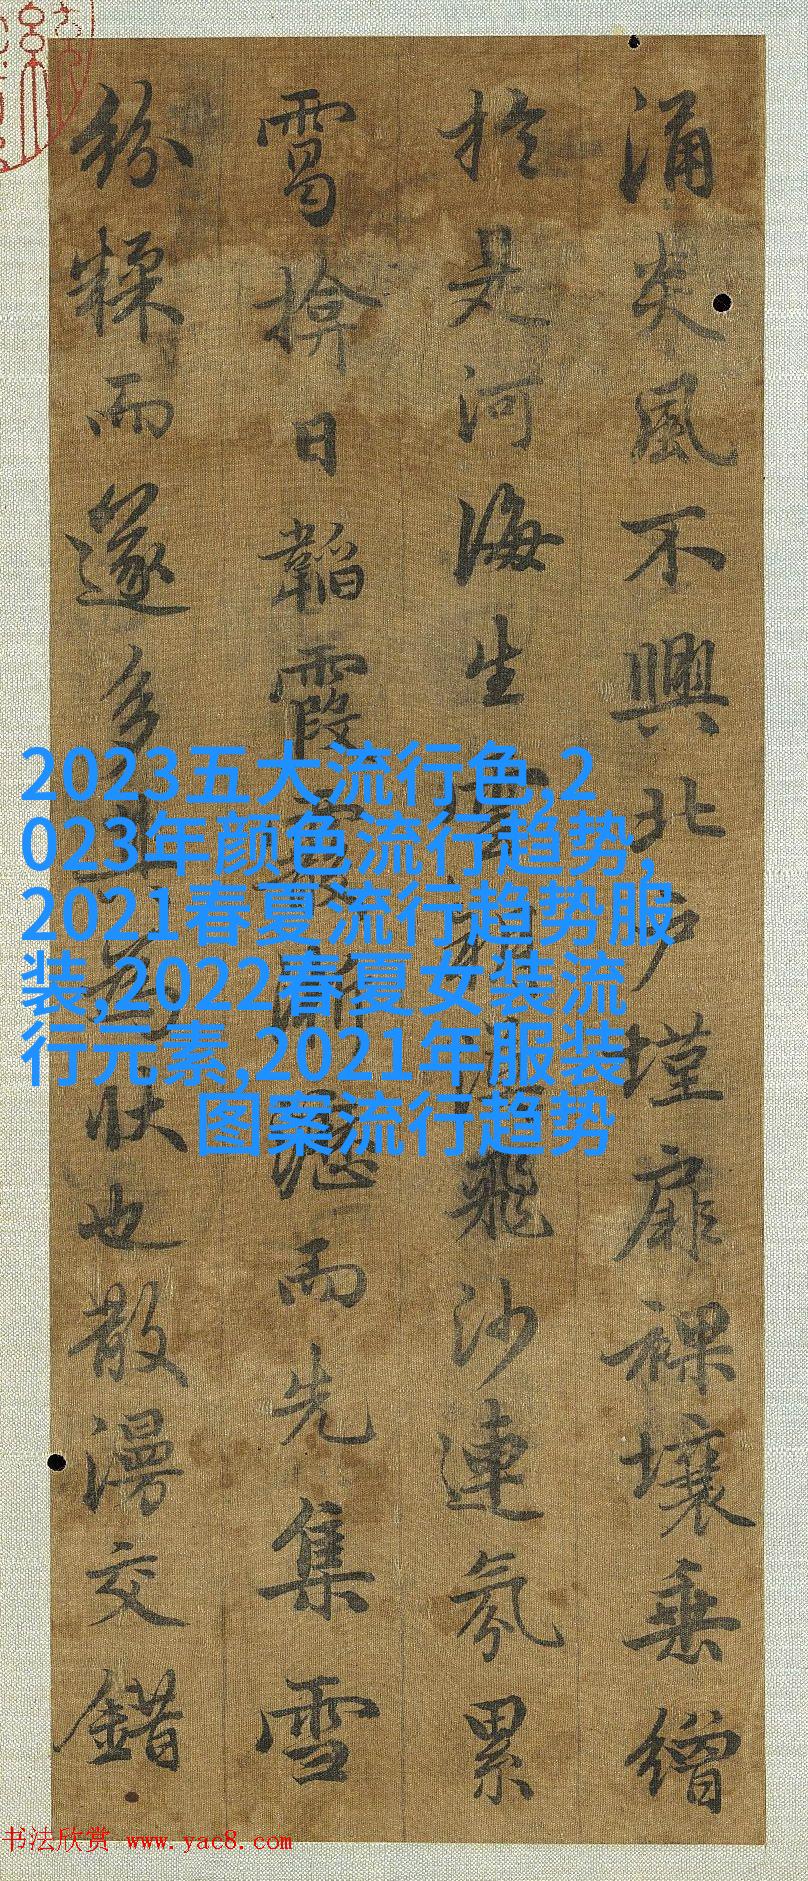 涌炎風不興北户墐扉裸壤垂繒
於是河海生雲朔漠飛沙連氛累
靄揜日韜霞霰淅瀝而先集雪
紛糅而遂多其為状也散漫交錯
2023五大流行色,2
023年颜色流行趋势,
2021春夏流行趋势服
装,2022春夏女装流
行元素,2021年服装
图案流行趋势
书法欣赏 www.yac8.com